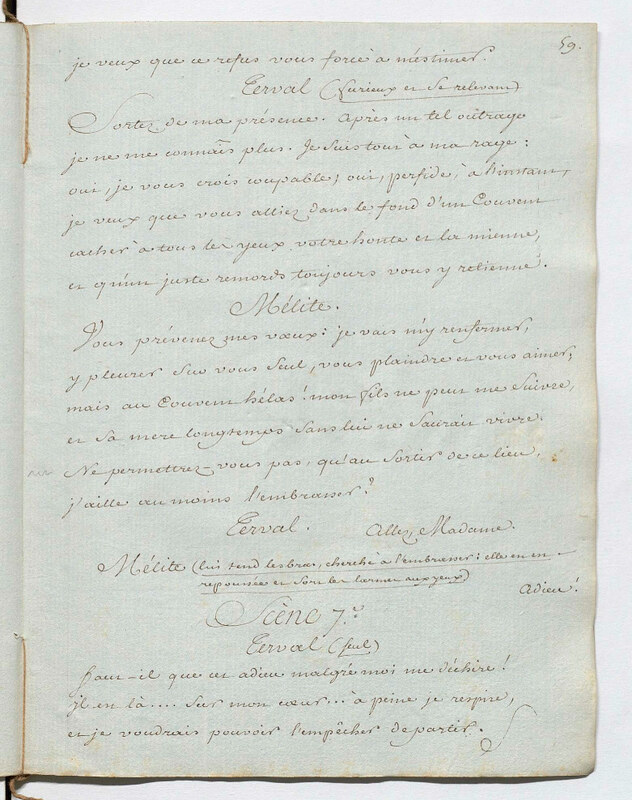 59.
je veux que ce refus vous force à m'estimer.
Terval (furieux et se relevant)
Sortez de ma présence. Après un tel outrage
je ne me connais plus. Je suis tout à ma rage :
oui, je vous crois coupable ; oui, perfide, à l'instant,
je veux que vous alliez dans le fond d'un Couvent
cacher à tous les yeux votre honte et la mienne,
et qu'un juste remords toujours vous y retienne.
Mélite.
Vous prévenez mes vœux : je vais m'y renfermer,
y pleurer sur vous seul, vous plaindre et vous aimer,
mais au Couvent hélas ! mon fils ne peut me suivre,
et sa mere longtemps sans lui ne saurait vivre.
Ne permettrez-vous pas, qu'au sortir de ce lieu,
j'aille au moins l'embrasser ?
Terval. Allez, Madame.
Mélite (lui tend les bras, cherche à l'embrasser : elle en est
repoussée et sort les larmes aux yeux)
adieu !
Scène 7.e
Terval (seul)
faut-il que cet adieu malgré moi me déchire !
il est là .... sur mon cœur ... à peine je respire,
et je voudrais pouvoir l'empêcher de partir.